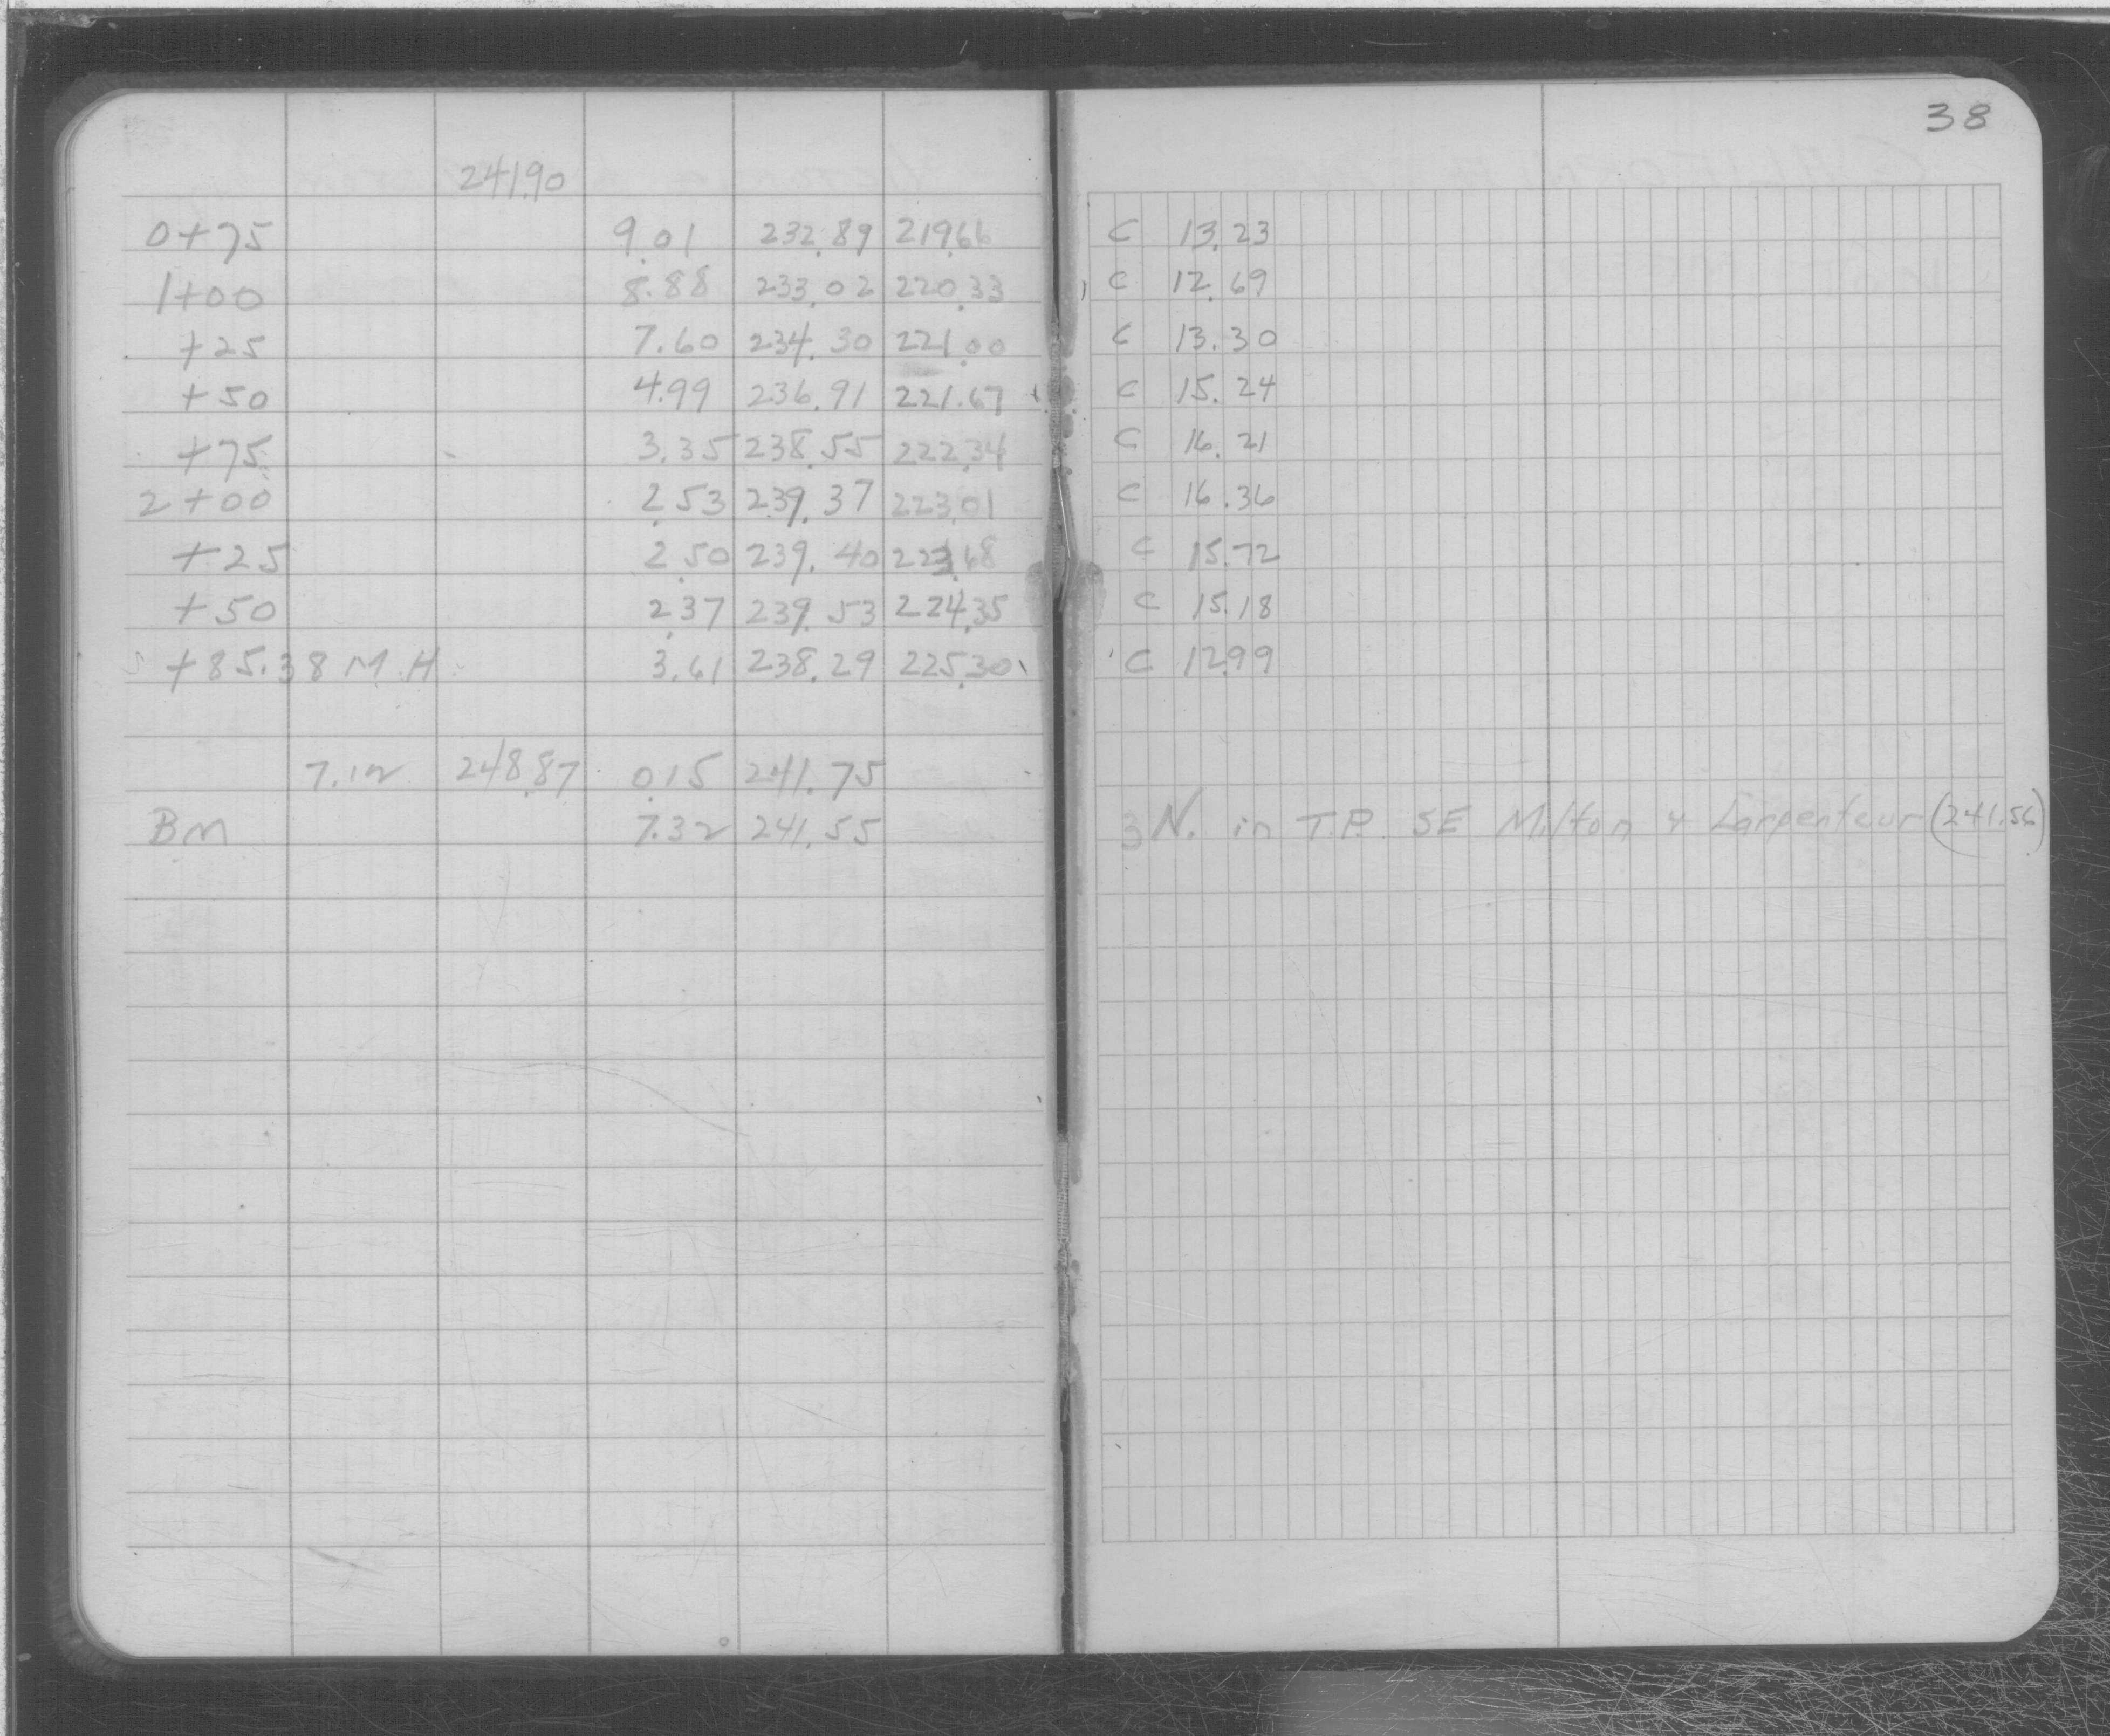 38
241.90
0+75 9.01 232.89 219.66 C 13.23
1+00 8.88 233.02 220.33 C 12.69
+25 7.60 234.30 221.00 C 13.30
+50 4.99 236.91 221.67 C 15.24
+75 3.35 238.55 222.34 C 16.21
2+00 2.53 239.37 223.01 C 16.36
+25 2.50 239.40 223.68 C 15.72
+50 2.37 239.53 224.35 C 15.18
+85.38 M.H. 3.61 238.29 225.30 C 12.99
7.12 248.87 0.15 241.75
BM 7.32 241.55 3 N. in T.P. SE Milton & Larpenteur (241.56)